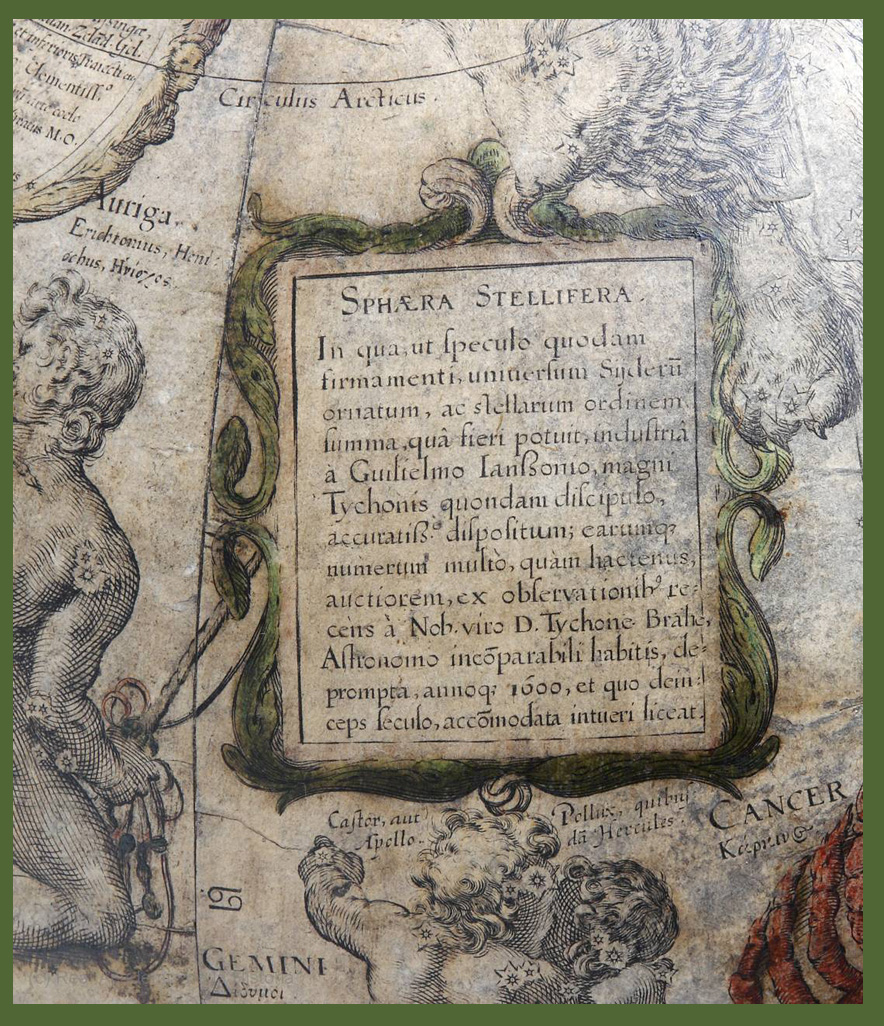 et inferioris
Clementiss.º
M.O.
Circulus Arcticus.
Auriga.
Erichtonius, Heni-
ochus, Ηνιοχος.
SPHÆRA STELLIFERA.
In qua, ut ſpeculo quodam
firmamenti, univerſum Syderū
ornatum, ac stellarum ordinem
ſumma, quâ fieri potuit, induſtriâ
à Guilielmo Ianſſonio, magni
Tychonis quondam diſcipulo,
accuratiſſ.ᵉ diſpoſitum; earumqꝫ
numerum multò, quàm hactenus,
auctiorem, ex obſervationibꝰ re-
cens à Nob. viro D. Tychone Brahe,
Aſtronomo incōparabili habitis, de-
prompta, annoqꝫ 1600, et quo dein-
ceps ſeculo, accōmodata intueri liceat.
Caſtor, aut
Apollo.
Pollux, quibuſ
dā Hercules.
CANCER
GEMINI
Διδυμοι